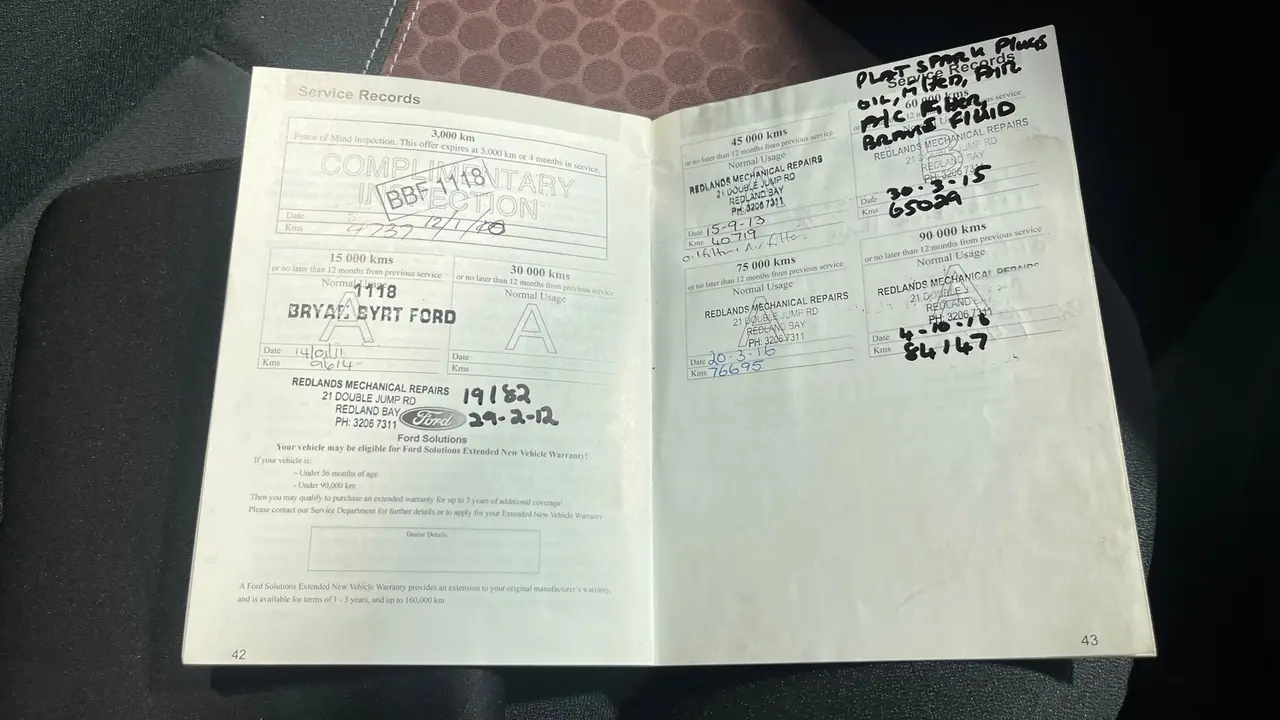 Service Records
3,000 km
Peace of Mind Inspection. This offer expires at 5,000 km or 4 months in service.
COMPLIMENTARY
INSPECTION
BBF 1118
Date
Kms 4737 12/1/10
15 000 kms
or no later than 12 months from previous service
Normal Usage
1118
A
BRYAN BYRT FORD
Date 14/01/11
Kms 9614
30 000 kms
or no later than 12 months from previous service
Normal Usage
A
Date
Kms
REDLANDS MECHANICAL REPAIRS
21 DOUBLE JUMP RD
REDLAND BAY
PH: 3206 7311
19182
29-2-12
Ford
Ford Solutions
Your vehicle may be eligible for Ford Solutions Extended New Vehicle Warranty!
If your vehicle is:
- Under 36 months of age
- Under 90,000 km
Then you may qualify to purchase an extended warranty for up to 3 years of additional coverage!
Please contact our Service Department for further details or to apply for your Extended New Vehicle Warranty
Dealer Details
A Ford Solutions Extended New Vehicle Warranty provides an extension to your original manufacturer's warranty,
and is available for terms of 1 - 3 years, and up to 160,000 km
42
Service Records
45 000 kms
or no later than 12 months from previous service
Normal Usage
REDLANDS MECHANICAL REPAIRS
21 DOUBLE JUMP RD
REDLAND BAY
PH: 3206 7311
Date 15-9-13
Kms 40719
PLAT SPARK PLUGS
OIL, FILTER, AIR
A/C FILTER,
BRAKE FLUID
60 000 kms
REDLANDS MECHANICAL REPAIRS
REDLAND BAY
B
Date 30-3-15
Kms 65029
75 000 kms
or no later than 12 months from previous service
Normal Usage
A
REDLANDS MECHANICAL REPAIRS
21 DOUBLE JUMP RD
REDLAND BAY
PH: 3206 7311
Date 20-3-16
Kms 76695
90 000 kms
or no later than 12 months from previous service
Normal Usage
A
REDLANDS MECHANICAL REPAIRS
REDLAND BAY
PH: 3206 7311
Date 4-10-16
Kms 84147
43